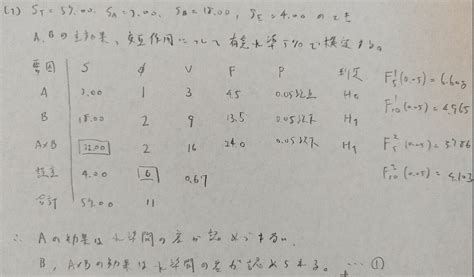 (2) S_T = 57.00, S_A = 3.00, S_B = 18.00, S_E = 4.00 のとき
A, Bの主効果, 交互作用について有意水準5%で検定する。
要因 S φ V F P 判定
A 3.00 1 3 4.5 0.05以上 H₀
B 18.00 2 9 13.5 0.05以下 H₁
A×B 32.00 2 16 24.0 0.05以下 H₁
誤差 4.00 6 0.67
合計 57.00 11
F¹₅(0.05) = 6.608
F¹₁₀(0.05) = 4.965
F²₅(0.05) = 5.786
F²₁₀(0.05) = 4.103
∴ Aの効果は水準間の差が認め
B, A×Bの効果は水準間の差が認められる。 … ①